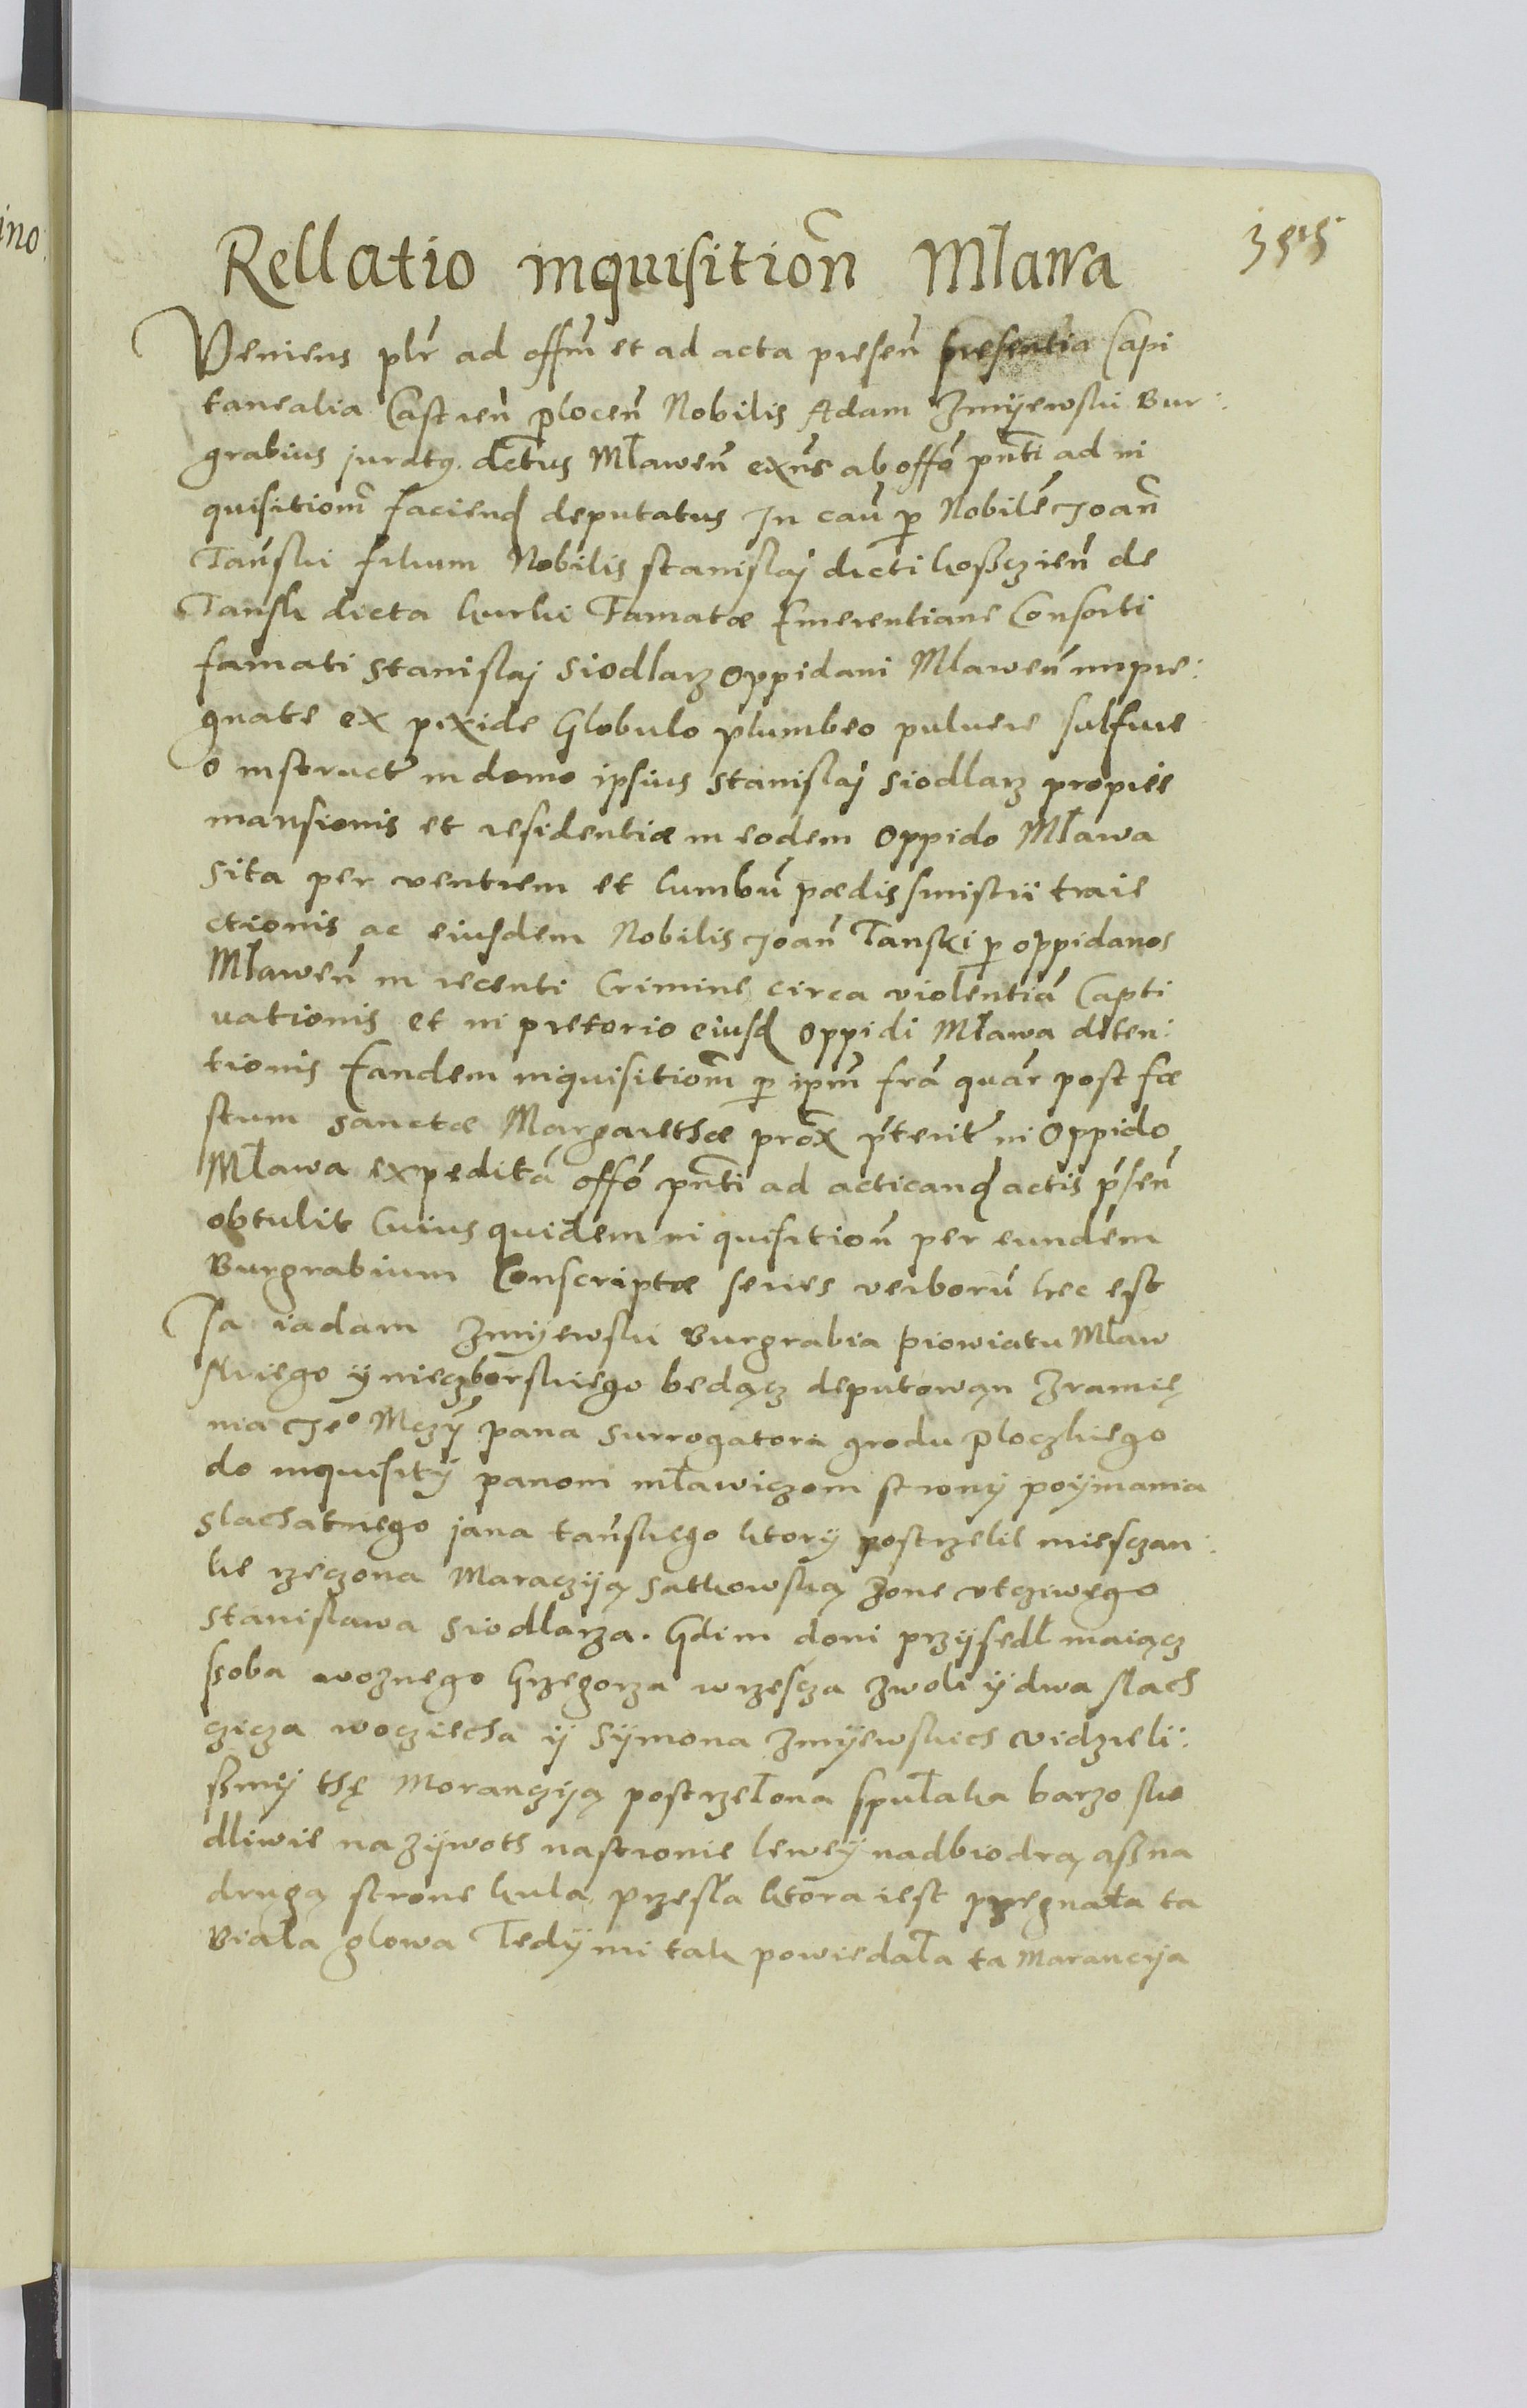 ino.
355
Rellatio inquisition̄ Mława
Veniens pl̄r ad offm̄ et ad acta presen̄ presentia Capi
tanealia Castren̄ plocen̄ Nobilis Adam Zmijewski Bur:
grabius juratq. dctus Mławen̄ exn̄s ab offō pn̄ti ad in
quisitionē faciend deputatus In cau̅ p Nobilē Joan̄
Tan̄ski filium Nobilis stanislaj dicti koßczien̄ de
Tansk dicta kurki Famatæ Emerentiane Consorti
famati stanislaj siodlarz oppidani Mlawen̄ impre:
gnate ex pixide Globulo plumbeo puluere sulfure
o instruct̄ in domo ipsius stanislaj siodlarz proprie
mansionis et residentiæ in eodem oppido Mława
sita per ventrem et lumbū pædis sinistri traie
ctionis ac eiusdem Nobilis Joan̄ Tanski p oppidanos
Mławen̄ in recenti Crimine circa violentiā Capti
uationis et in pretorio eiusd oppidi Mława deten:
tionis Eandem inquisitionē p ipm̄ fr̄a quar̄ post fæ
stum sanctæ Margarethæ prox̄ p̄terit̄ in Oppido
Mława expeditā offō pn̄ti ad acticand actis p̄sen̄
obtulit Cuius quidem in quisition̄ per eundem
Burgrabium Conscriptæ series verborū hec est
Ja iadam Zmijewski Burgrabia powiatu Mław
skiego ÿ nieczborskiego bedącz deputowąn Zramię
nia Jeº Mczÿ pana surrogatora grodu ploczkiego
do inquisitÿ panom mławiczom stronÿ poÿmania
slachatnego jana tan̄skiego ktorÿ postrzelił miesczan:
ke rzeczona Maraczÿą sutkowską Zone vtcziwego
stanislawa siodlarza. Gdim doni przÿsedł maiącz
ssoba woznego Grzegorza wrzescza Zwoli ÿ dwa slach
czicza wocziecha ÿ Sÿmona Zmÿewskich vidzieli:
ßmÿ thę Moranczÿą postrzełona spułaka barzo sko
dliwie na zÿwoth nastronie lewey nadbiodrą aßna
drugą strone kula przesła ktora iest przegnała ta
Biała glowa Tedÿ mi tak powiedała ta Marancija